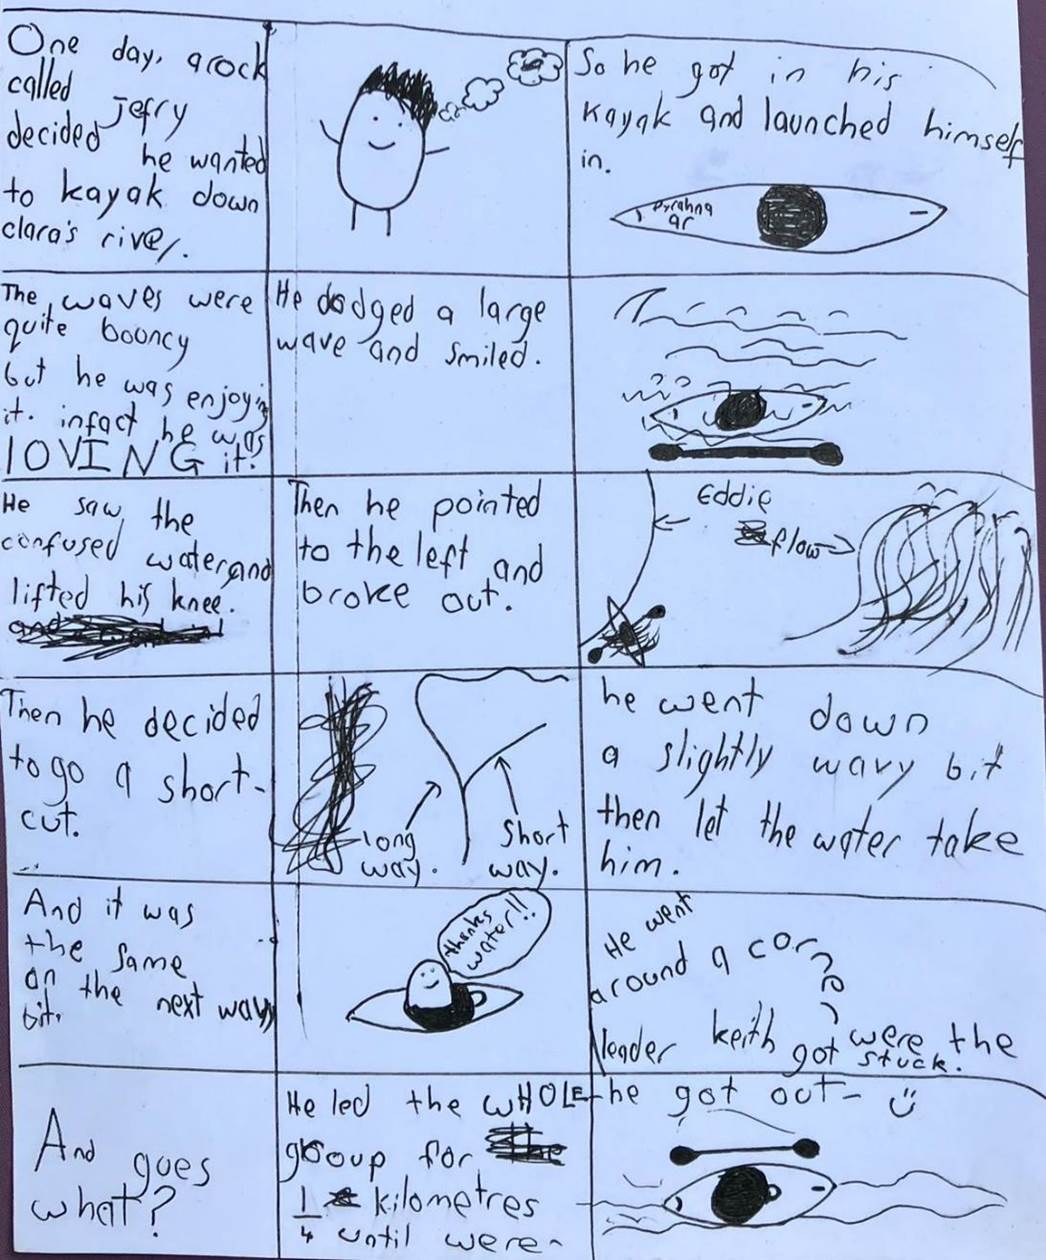 One day, a rock
called
Jefry
decided
he wanted
to kayak down
clara's river.
So he got in his
kayak and launched himself
in.
Pyrahna
ar
The waves were
quite booncy
but he was enjoying
it. infact he was
lOVING it!
He dodged a large
wave and smiled.
He saw the
confused water and
lifted his knee.
Then he pointed
to the left and
broke out.
Eddie
flow
Then he decided
to go a short-
cut.
long
way.
short
way.
he went down
a slightly wavy bit
then let the water take
him.
And it was
the same
on the next wavy
bit.
thanks
water!!
He went
around a corner
were the
leader keith got stuck.
And goes
what?
He led the WHOLE
group for
1/4 kilometres
until were-
he got out-